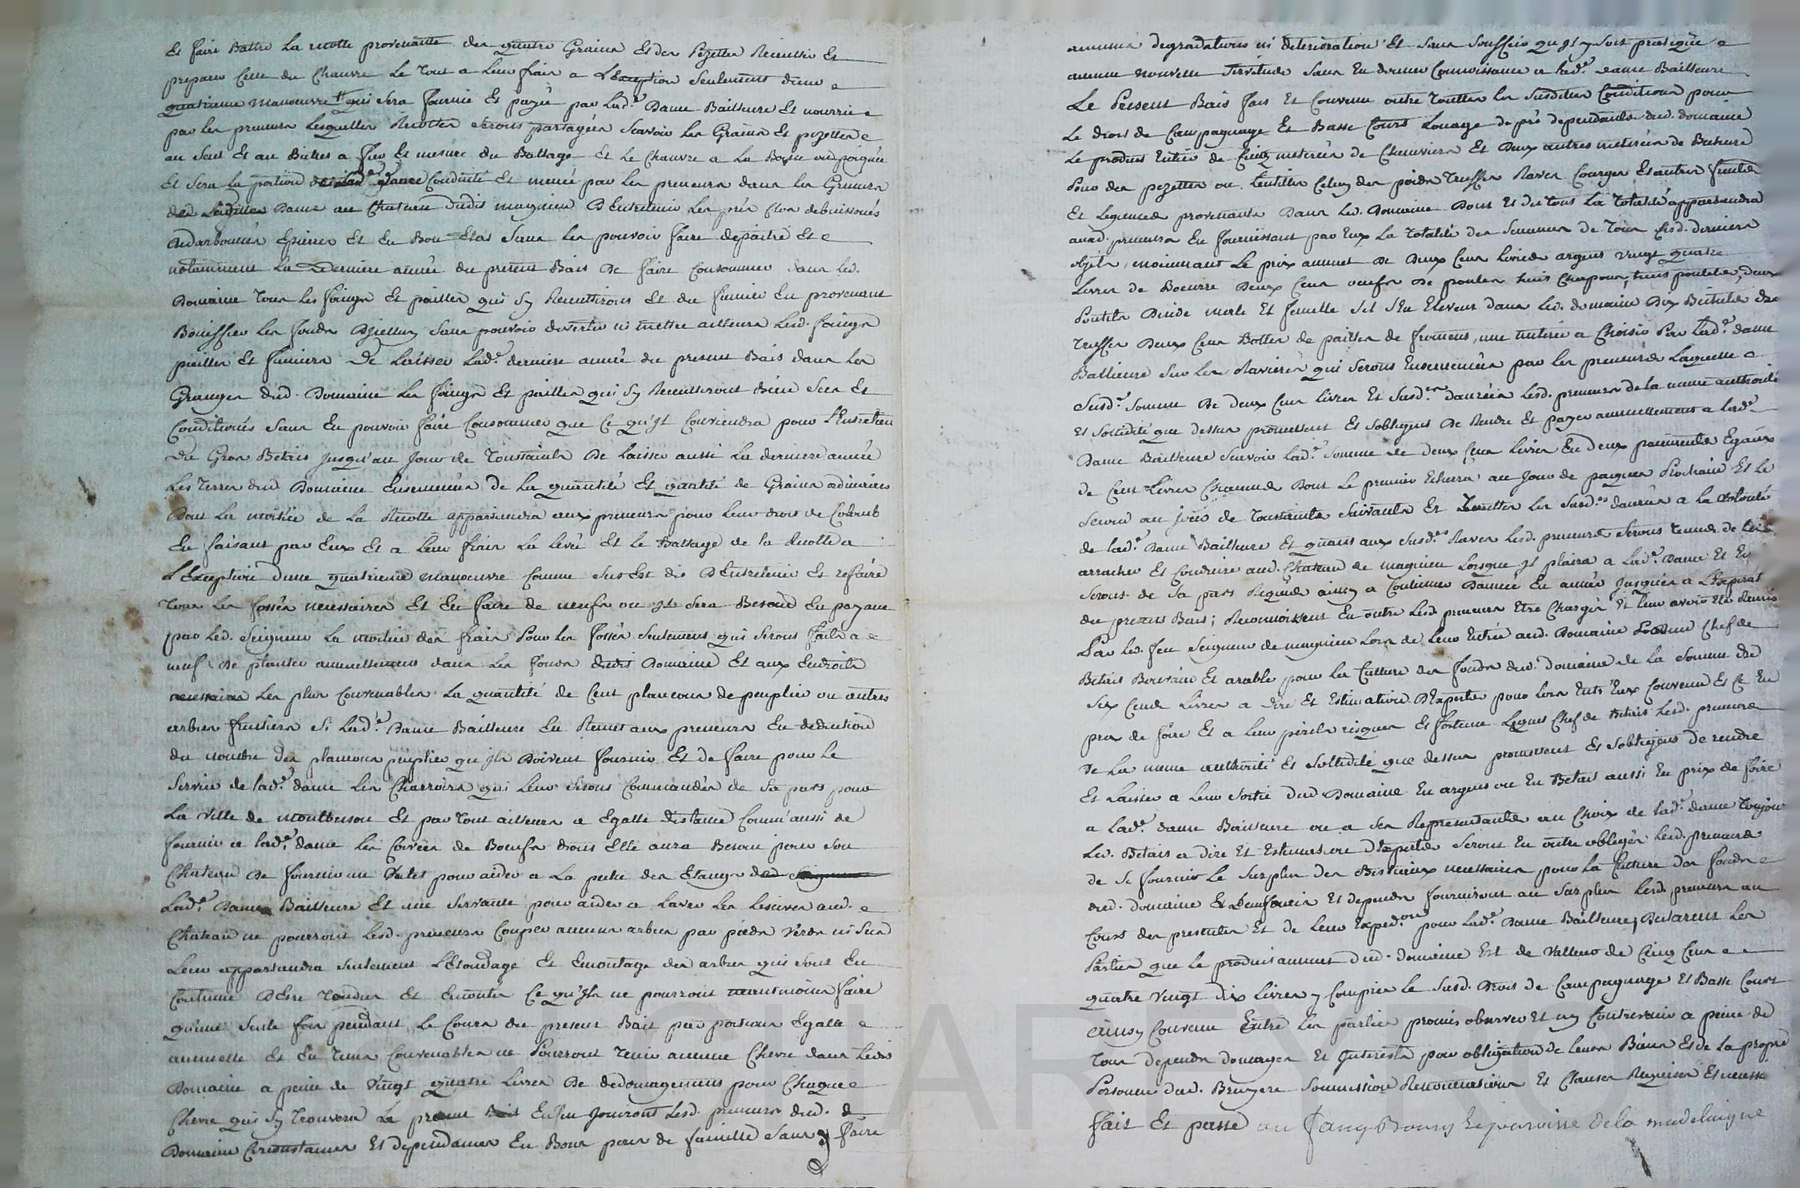 Et faire Battre La recolte provenante des quatre Grains Et des Pezettes Recueillir Et
preparer Celle du Chanvre Le Tout a Leur frais a L'Exception Seulement d'une
quatrieme manoeuvre qui Sera fournie Et payée par Lad.e Dame Bailleure Et nourrie
par les preneurs Lesquelles Recoltes Seront partagées Scavoir Les Grains Et pezettes
au Seul Et au Battes a fur Et mesure du Battage Et Le Chanvre a La Botte ou poignée
Et Sera La portion de Lad.e Dame Conduite Et menée par les preneurs dans les Greniers
de Ladite Dame au Chateau dudit magnieu D'Entretenir Les prés Clos de buissons
Epines Et En Bon Etat Sans Les pouvoir faire depaitre Et
notamment La Derniere année du present Bail De faire Consommer dans Led.
Domaine Tous Les foings Et pailles qui Sy Recueilliront Et du fumier En provenant
Les fonds D'jcelluy Sans pouvoir divertir ni mettre ailleurs Lesd. foings
pailles Et fumiers De Laisser Lad.e derniere année du present Bail dans Les
Granges dud. Domaine Les foings Et pailles qui Sy Recueilleront Bien Secs Et
Conditionés Sans En pouvoir faire Consommer que Ce qu'jl Conviendra pour L'Entretien
du Gros Betail Jusqu'au Jour de Toussaints De Laisser aussi La derniere année
Les Terres dud Domaine Ensemencés de La quantité Et qualité de Grains ordinaires
Dont La moitiée de La Recolte appartiendra aux preneurs pour Leur droit de Colonb
En faisant par Eux Et a Leur frais La Levée Et Le Battage de la Recolte a
L'Exception d'une quatrieme manoeuvre Comme Sus Est dit D'Entretenir Et refaire
Tous Les fossés necessaires Et En faire de neufs ou jl Sera Besoin En payant
par Led. Seigneur La moitié des frais Pour Les fossés Seulement qui Seront faits a
neuf De planter annuellement dans Les fonds dudit Domaine Et aux Endroits
necessaires Les plus Convenables La quantité de Cent plançons de peuplier ou autres
arbres fruitiers Si Lad.e Dame Bailleure En Remet aux preneurs En deduction
du nombre des plançons peuplier qu'jls Doivent fournir Et de faire pour Le
Service de Lad.e dame Les Charrois qui Leur Seront Commandés de Sa part pour
La Ville de montbrison Et par Tout ailleurs a Egalle distance Comm'aussi de
fournir a Lad.e dame Les Corvées de Boeufs dont Elle aura Besoin pour Son
Chateau De fournir un Valet pour aider a La peche des Etangs de
Lad.e Dame Bailleure Et une Servante pour aider a Laver Les Lessives aud.
Chateau ne pourront Lesd. preneurs Couper aucuns arbres par pieds Verds ni Secs
Leur appartiendra Seulement L'Elondage Et Emontage des arbres qui Sont En
Coutume D'Etre Tondus Et Emontés Ce qu'jls ne pourront neantmoins faire
qu'une Seule fois pendant Le Cours du present Bail par portions Egalle
annuelle Et En Tems Convenables ne Pourront Tenir aucune Chevre dans Ledit
Domaine a peine de Vingt quatre Livres De dedomagement pour Chaque
Chevre qui Sy Trouvera Le present Bail Enfin Jouiront Lesd. preneurs dud.
Domaine Circonstances Et dependances En Bons peres de famille Sans y faire
aucunes degradations ni deterioration Et Sans Souffrir qu'jl y Soit pratiqué
aucune nouvelle Servitude Sans En donner Connoissance a Lad.e Dame Bailleure
Le Present Bail fait Et Convenu outre Touttes Les Susdites Conditions pour
Le droit de Campagnage Et Basse Court Louage de pré dependants dud. domaine
Le produit Entier de Cinq meterées de Cheneviere Et Deux autres meterées de
Pour des pezettes ou Lentilles Celuy des poids Truffes Raves Courges Et autres fruits
Et Legumes provenants Dans Led. Domaine Dont Et du Tout La Totalité appartiendra
auxd. preneurs En fournissant par Eux La Totalité des Semences de Tous Lesd. derniers
objets, moiennant Le prix annuel De Deux Cens Livres argent Vingt quatre
Livres De Boeurre Deux Cens oeufs De poules huit Chapons, huit poulets, deux
Poulets D'inde male Et femelle Sil S'En Eleve dans Led. domaine Dix Bichets de
Truffes Deux Cens Bottes de pailles de froment, une meterée a Choisir Par Lad.e dame
Bailleure Sur Les Ravieres qui Seront Ensemencées par Les preneurs Laquelle
Susd.e Somme De deux Cens Livres Et Susd.es danrées Lesd. preneurs de la meme authorité
Et Solidité que dessus promettent Et Sobligent De Rendre Et payer annuellement a Lad.e
Dame Bailleure Scavoir Lad.e Somme de deux Cens Livres En deux paiements Egaux
de Cent Livres Chacuns Dont Le premier Echerra au Jour de paques Prochain Et Le
Second au Jour de Toussaints Suivants Et Touttes Les Susd.es danrées a La Volonté
de Lad.e Dame Bailleure Et quant aux Susd.es Raves Lesd. preneurs Seront Tenus de Les
arracher Et Conduire aud. Chateau de magnieu Lorsque jl plaira a Lad.e Dame Et En
Seront de Sa part Requis ainsy a Continuer D'année En année Jusques a L'Expirat.
du present Bail; Reconnoissent En outre Lesd. preneurs Etre Chargés Et Leur avoir Eté Remis
Par Led. feu Seigneur de magnieu Lors de Leur Entrée aud. Domaine En Chef de
Betail Bouvain Et arable pour La Culture des fonds dud. domaine de La Somme de
Six Cents Livres a dire Et Estimation D'Experts pour Lors Entr'Eux Convenus Et Ce En
prix de foire Et a Leur perils risques Et fortune Lequel Chef de Betail Lesd. preneurs
De La meme authorité Et Sollidité que dessus promettent Et Sobligent de rendre
Et Laisser a Leur Sortie Dud Domaine En argent ou En Betail aussi En prix de foire
a Lad.e dame Bailleure ou a Ses Representants au Choix de Lad.e dame Toujours
Led. Betail a dire Et Estimation d'Experts Seront En outre obligés Lesd. preneurs
de Se fournir Le Surplus des Bestiaux necessaires pour La Culture des fonds
dud. domaine Et Fourniront au Surplus Lesd. preneurs au
Cout des presentes Et de Leur Exped.on pour Lad.e Dame Bailleure, Declarent Les
Parties que Le produit annuel dud. domaine Est de Valleur de Cinq Cens
quatre Vingt dix Livres y Compris Le Susd. droit de Campagnage Et Basse Court
ainsy Convenu Entre Les parties promis observer Et n'y Contrevenir a peine de
Tous depends domages Et Interets pour obligation de Leurs Biens Et de La propre
Personne dud. Bruyere Soumissions Renonciations Et Clauses Requises Et necess.
fait Et passé au faugbourg Et paroisse de la madelaigne
CHAREYRON